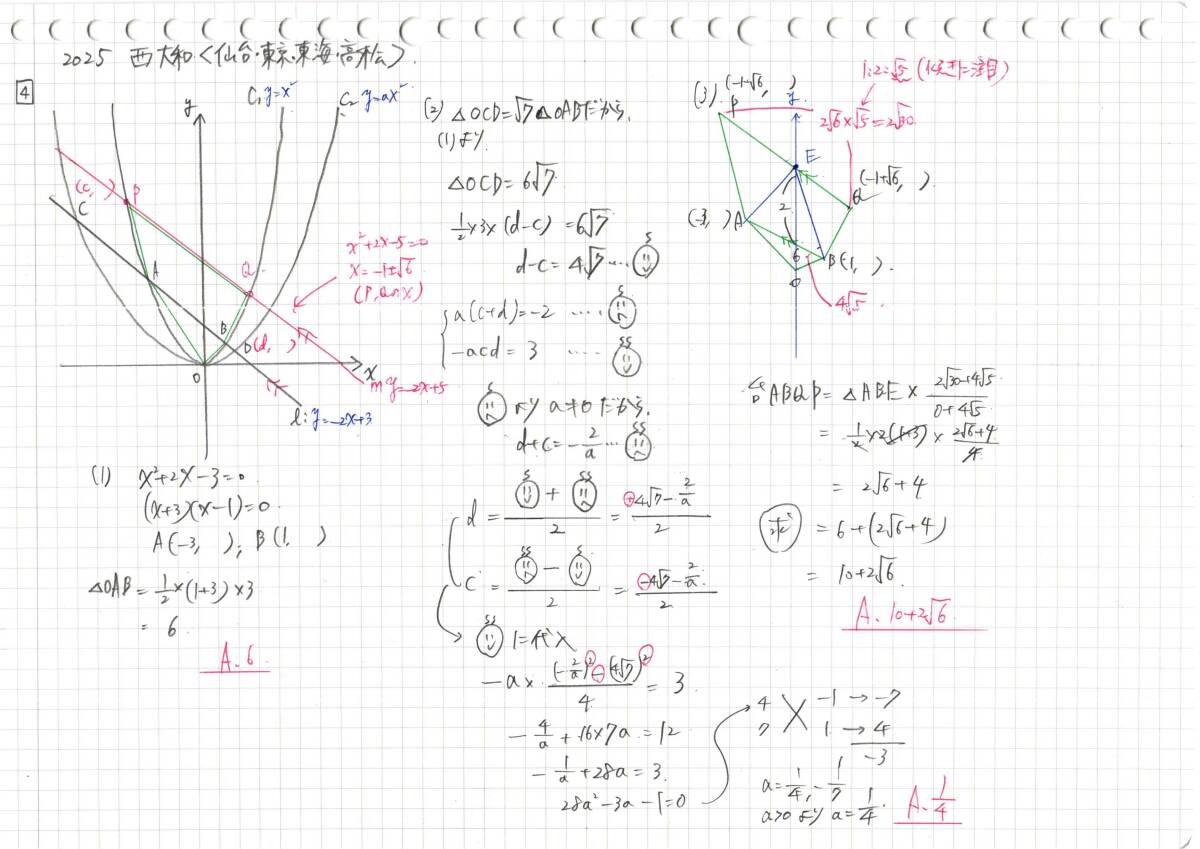 2025 西大和〈仙台・東京・東海・高松会〉.
4
y
C₁ y=x²
C₂ y=ax²
(c, )
C
P
A
Q
B
D(d, )
O
x
x²+2x-5=0
x=-1±√6
(P,Qのx)
m y=-2x+5
l: y=-2x+3
(1) x²+2x-3=0
(x+3)(x-1)=0
A(-3, ), B(1, )
△OAB=1/2×(1+3)×3
= 6
A. 6
(2) △OCD=√7△OABだから,
(1)より
△OCD=6√7
1/2×3×(d-c)=6√7
d-c=4√7…
a(c+d)=-2 ……
-acd=3 ……
より a≠0だから,
d+c=-2/a…
d = ( + )/2 = (+4√7-2/a)/2
c = ( - )/2 = (-4√7-2/a)/2
に代入
-a×((-2/a)²-(4√7)²)/4=3
-4/a+16×7a=12
-1/a+28a=3
28a²-3a-1=0
4 -1→-7
7 1→4
-3
a=1/4, -1/7
a>0より a=1/4.
A. 1/4
(3)
(-1-√6, )
P
y
1:2:√5 (傾きに注目)
2√6×√5=2√30
E
(-1+√6, )
Q
(-3, )A
2
6
B(1, ).
O
4√5
ABQP=△ABE×(2√30+4√5)/(0+4√5)
=1/2×2(1+3)×(2√6+4)/4
=2√6+4
求 =6+(2√6+4)
=10+2√6
A. 10+2√6